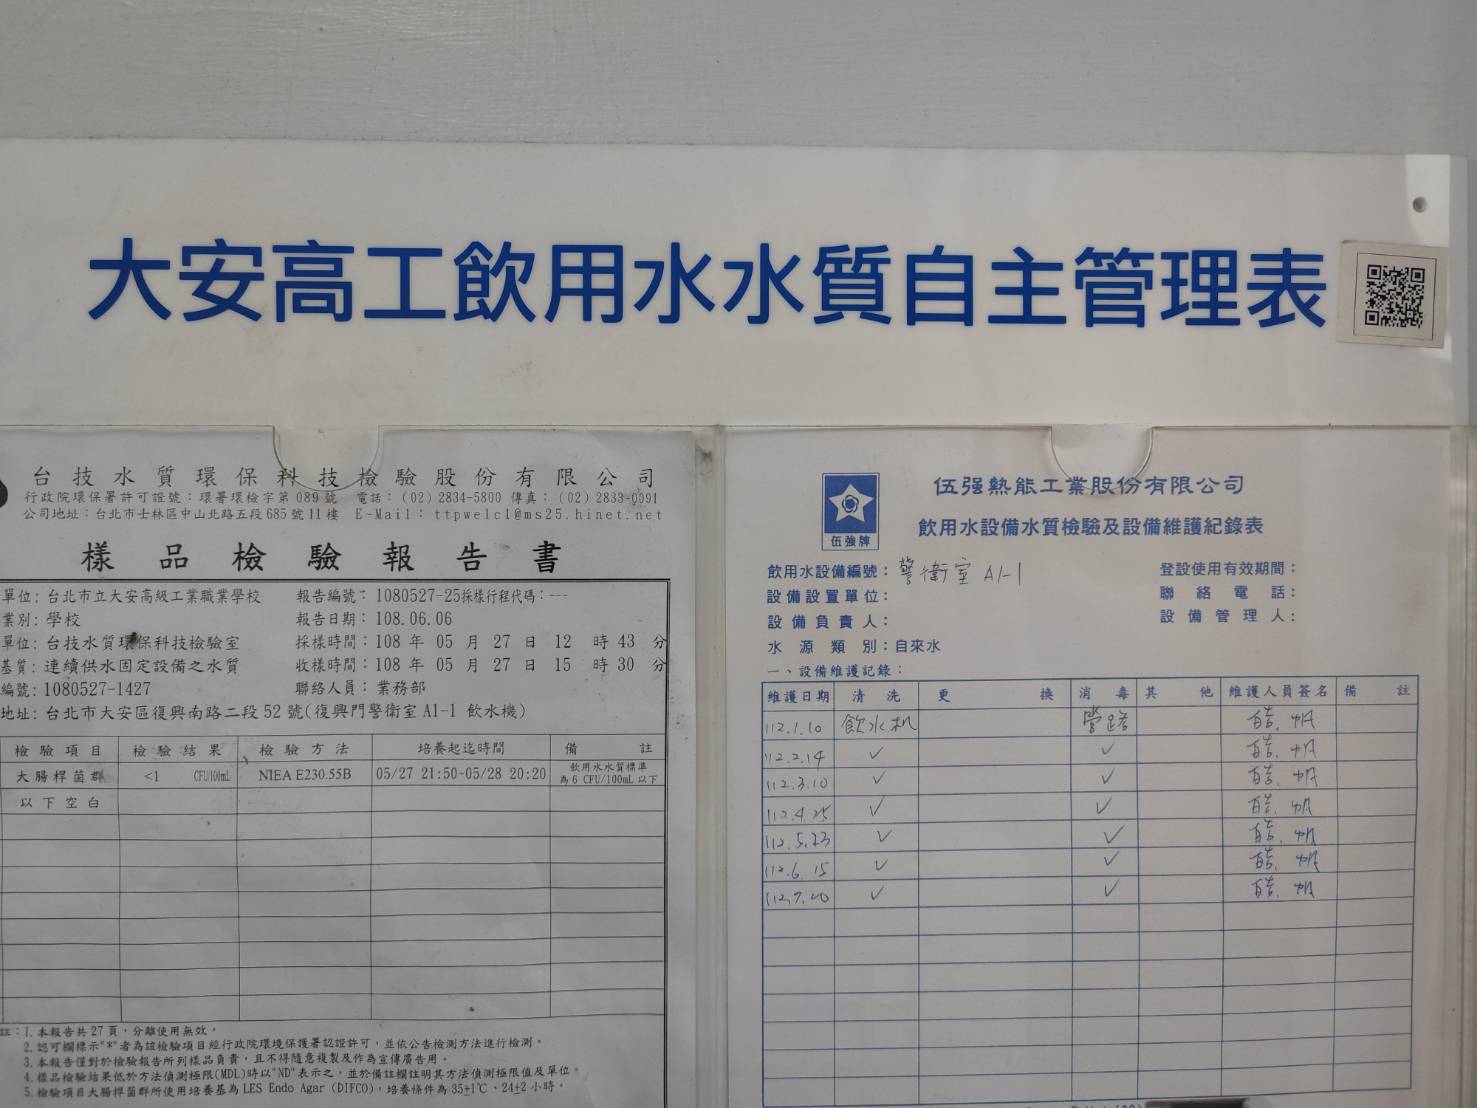 大安高工飲用水水質自主管理表
台技水質環保科技檢驗股份有限公司
行政院環保署許可證號：環署環檢字第089號 電話：(02)2834-5800 傳真：(02)2833-0091
公司地址：台北市士林區中山北路五段685號11樓 E-Mail：ttpwelcl@ms25.hinet.net
樣品檢驗報告書
單位：台北市立大安高級工業職業學校 報告編號：1080527-25採樣行程代碼：---
業別：學校 報告日期：108.06.06
單位：台技水質環保科技檢驗室 採樣時間：108 年 05 月 27 日 12 時 43 分
基質：連續供水固定設備之水質 收樣時間：108 年 05 月 27 日 15 時 30 分
編號：1080527-1427 聯絡人員：業務部
地址：台北市大安區復興南路二段52號(復興門警衛室A1-1 飲水機)
檢驗項目 檢驗結果 檢驗方法 培養起迄時間 備註
大腸桿菌群 <1 CFU/100mL NIEA E230.55B 05/27 21:50-05/28 20:20 飲用水水質標準
為6 CFU/100mL以下
以下空白
註：1.本報告共27頁，分離使用無效。
2.認可欄標示"*"者為該檢驗項目經行政院環境保護署認證許可，並依公告檢測方法進行檢測。
3.本報告僅對於檢驗報告所列樣品負責，且不得隨意複製及作為宣傳廣告用。
4.樣品檢驗結果低於方法偵測極限(MDL)時以"ND"表示之，並於備註欄註明其方法偵測極限值及單位。
5.檢驗項目大腸桿菌群所使用培養基為LES Endo Agar (DIFCO)，培養條件為35±1℃、24±2小時。
伍強牌
伍强熱能工業股份有限公司
飲用水設備水質檢驗及設備維護紀錄表
飲用水設備編號：警衛室 A1-1 登設使用有效期間：
設備設置單位： 聯絡電話：
設備負責人： 設備管理人：
水源類別：自來水
一、設備維護記錄：
維護日期 清洗 更換 消毒 其他 維護人員簽名 備註
112.1.10 飲水机 管路
112.2.14 ✓ ✓
112.3.10 ✓ ✓
112.4.25 ✓ ✓
112.5.23 ✓ ✓
112.6.15 ✓ ✓
112.7.20 ✓ ✓